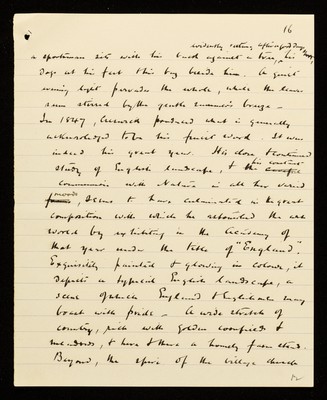 16
evidently resting after a good day,
a sportsman sits with his back against a tree, his
dogs at his feet & his bag beside him. A quiet
evening light pervades the whole, while the leaves
seem stirred by the gentle summer's breeze -
In 1847, Creswick produced what is generally
acknowledged to be his finest work. It was
indeed his great year. His close, & continued
study of English landscape, & his constant
communion with Nature in all her varied
moods, seems to have culminated in the great
composition with which he astonished the art
world by exhibiting in the Academy of
that year under the title of "England".
Exquisitely painted & glowing in colour, it
depicts a typical English landscape, a
scene of which England & Englishmen may
boast with pride - A wide stretch of
country, rich with golden cornfields &
meadows, & here & there a homely farmstead.
Beyond, the spire of the village church